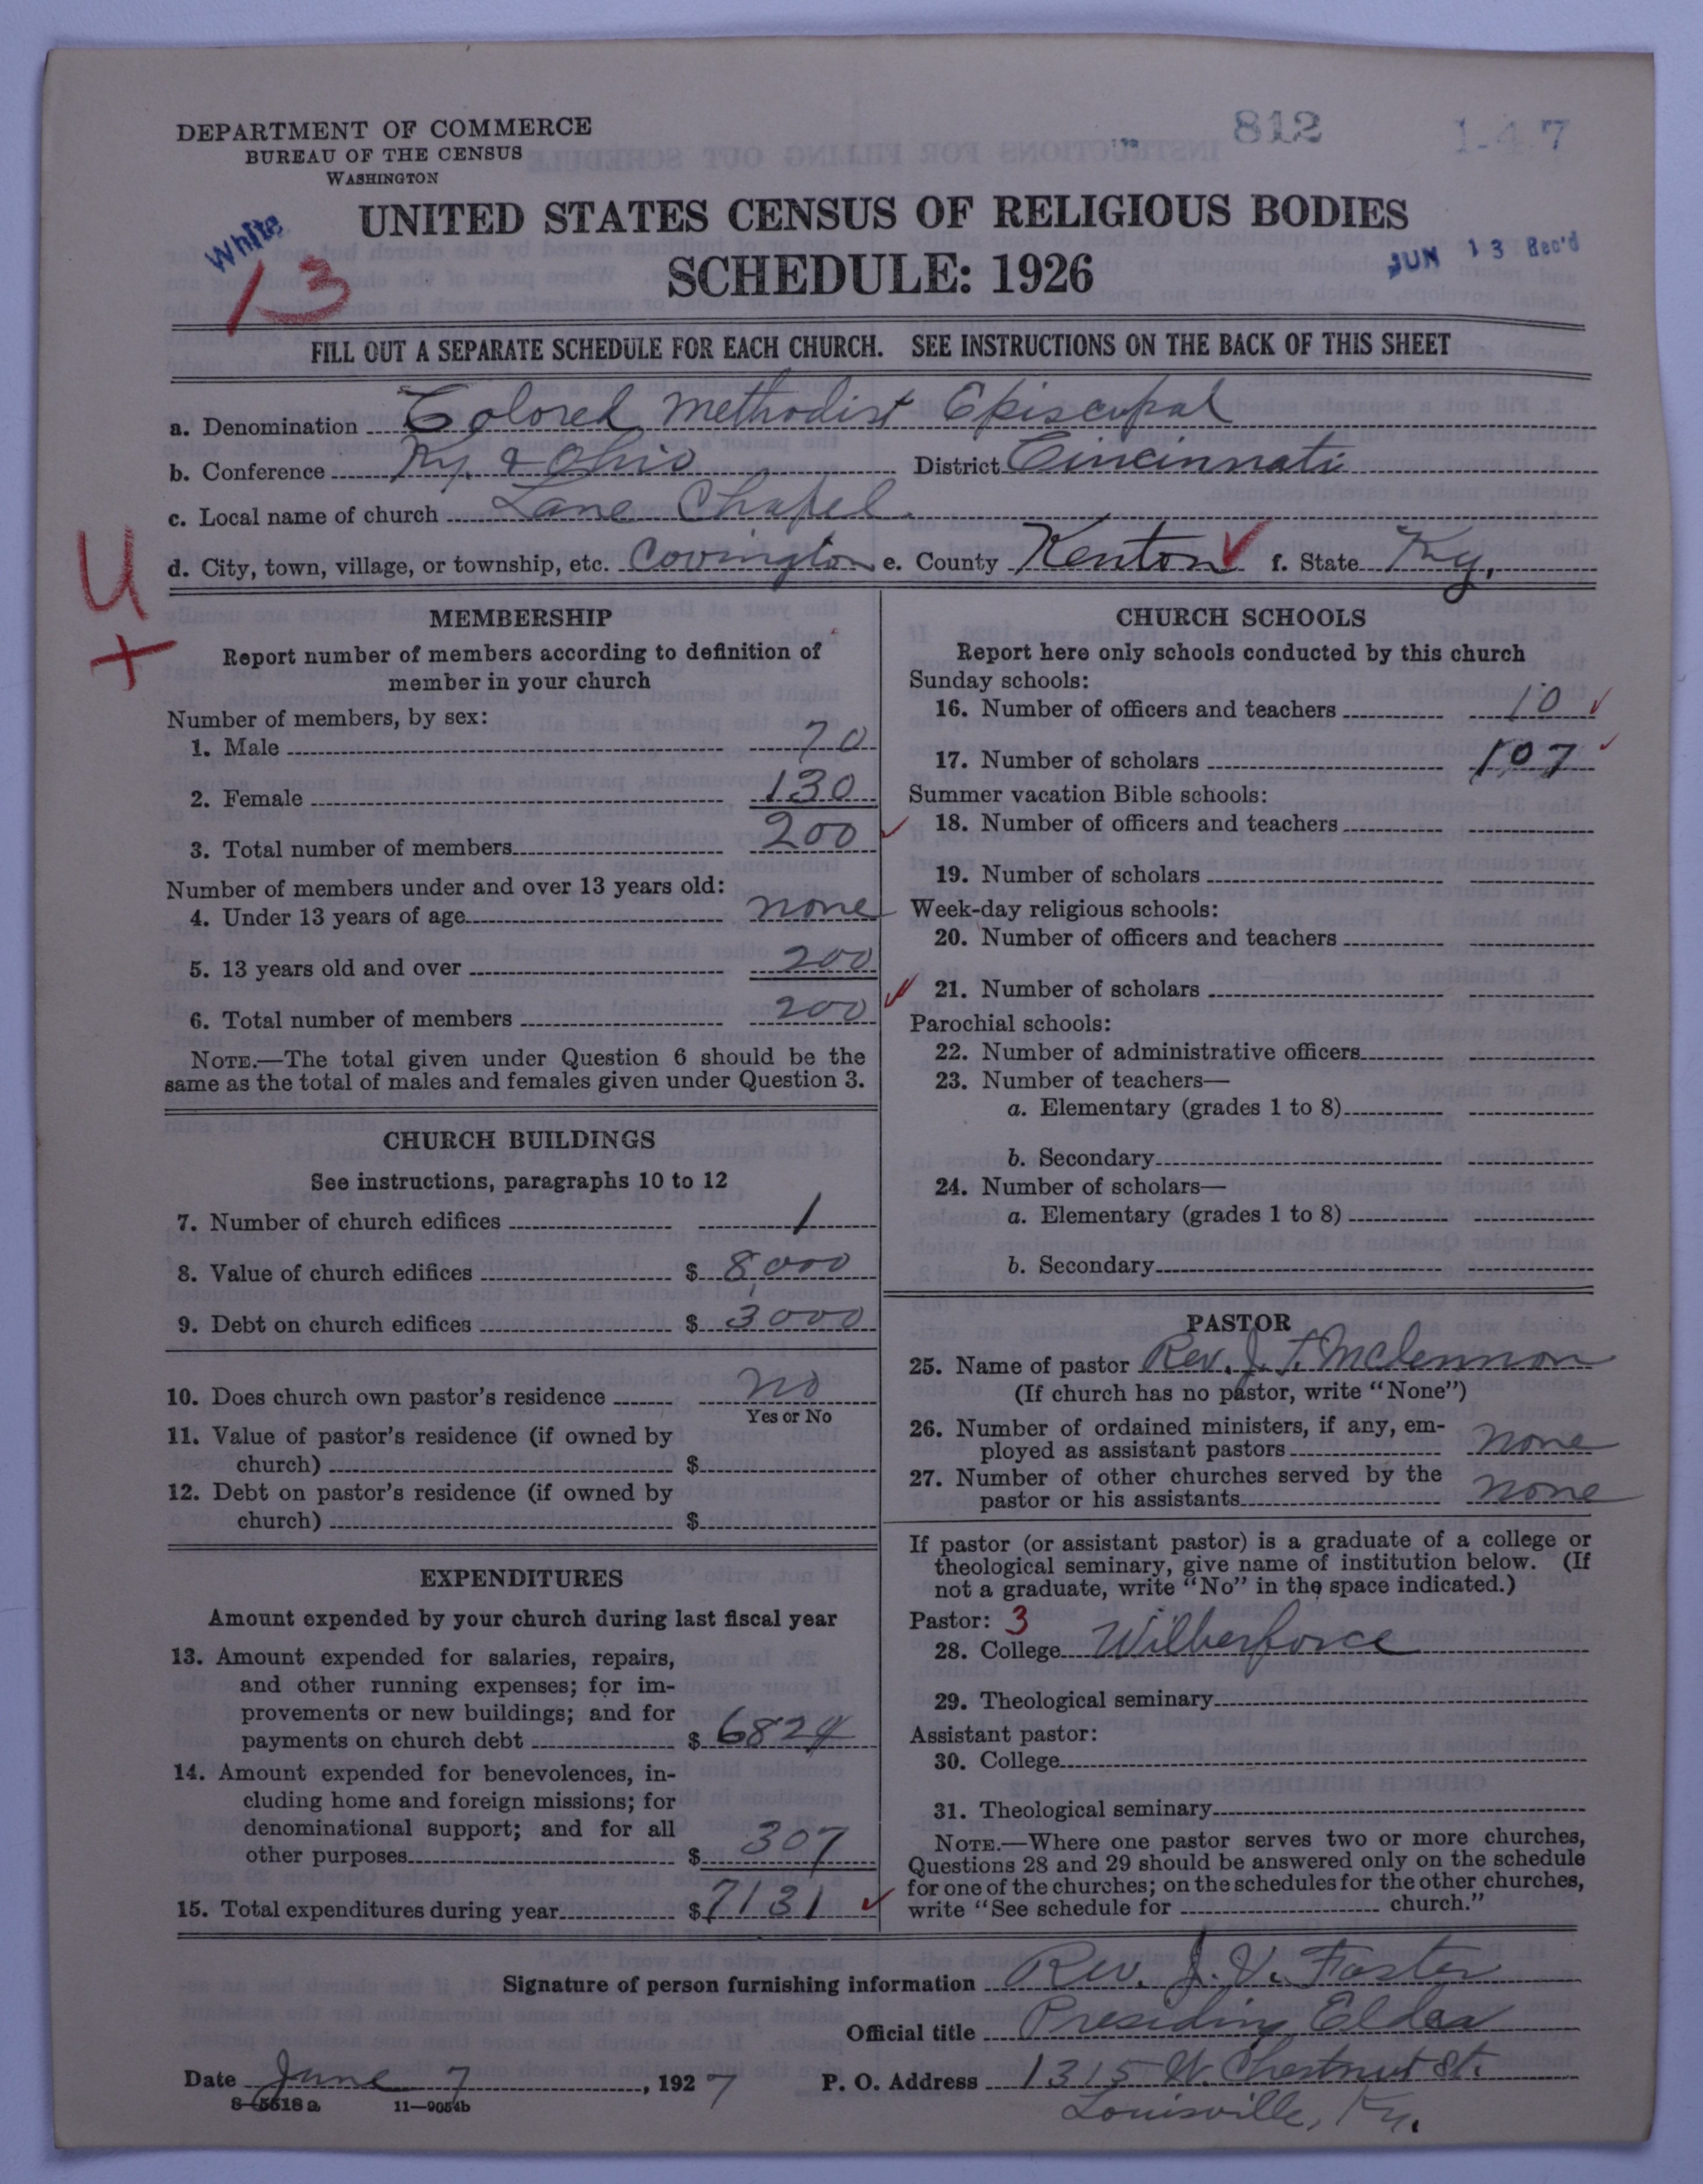 DEPARTMENT OF COMMERCE
BUREAU OF THE CENSUS
WASHINGTON
812
147
UNITED STATES CENSUS OF RELIGIOUS BODIES
SCHEDULE: 1926
White
13
JUN 13 Rec'd
FILL OUT A SEPARATE SCHEDULE FOR EACH CHURCH. SEE INSTRUCTIONS ON THE BACK OF THIS SHEET
a. Denomination Colored Methodist Episcopal
b. Conference Ky. & Ohio District Cincinnati
c. Local name of church Lane Chapel.
d. City, town, village, or township, etc. Covington e. County Kenton f. State Ky.
U
+
MEMBERSHIP
Report number of members according to definition of
member in your church
Number of members, by sex:
1. Male 70
2. Female 130
3. Total number of members 200
Number of members under and over 13 years old:
4. Under 13 years of age none
5. 13 years old and over 200
6. Total number of members 200
NOTE.—The total given under Question 6 should be the
same as the total of males and females given under Question 3.
CHURCH BUILDINGS
See instructions, paragraphs 10 to 12
7. Number of church edifices 1
8. Value of church edifices $ 8,000
9. Debt on church edifices $ 3000
10. Does church own pastor's residence no
Yes or No
11. Value of pastor's residence (if owned by
church) $
12. Debt on pastor's residence (if owned by
church) $
EXPENDITURES
Amount expended by your church during last fiscal year
13. Amount expended for salaries, repairs,
and other running expenses; for im-
provements or new buildings; and for
payments on church debt $ 6824
14. Amount expended for benevolences, in-
cluding home and foreign missions; for
denominational support; and for all
other purposes $ 307
15. Total expenditures during year $ 7131
CHURCH SCHOOLS
Report here only schools conducted by this church
Sunday schools:
16. Number of officers and teachers 10
17. Number of scholars 107
Summer vacation Bible schools:
18. Number of officers and teachers
19. Number of scholars
Week-day religious schools:
20. Number of officers and teachers
21. Number of scholars
Parochial schools:
22. Number of administrative officers
23. Number of teachers—
a. Elementary (grades 1 to 8)
b. Secondary
24. Number of scholars—
a. Elementary (grades 1 to 8)
b. Secondary
PASTOR
25. Name of pastor Rev. J. T. McLennon
(If church has no pastor, write "None")
26. Number of ordained ministers, if any, em-
ployed as assistant pastors none
27. Number of other churches served by the
pastor or his assistants none
If pastor (or assistant pastor) is a graduate of a college or
theological seminary, give name of institution below. (If
not a graduate, write "No" in the space indicated.)
Pastor: 3
28. College Wilberforce
29. Theological seminary
Assistant pastor:
30. College
31. Theological seminary
NOTE.—Where one pastor serves two or more churches,
Questions 28 and 29 should be answered only on the schedule
for one of the churches; on the schedules for the other churches,
write "See schedule for church."
Signature of person furnishing information Rev. J. V. Foster
Official title Presiding Elder
Date June 7, 1927 P. O. Address 1315 W. Chestnut St.
8-5518a 11—9054b
Louisville, Ky.